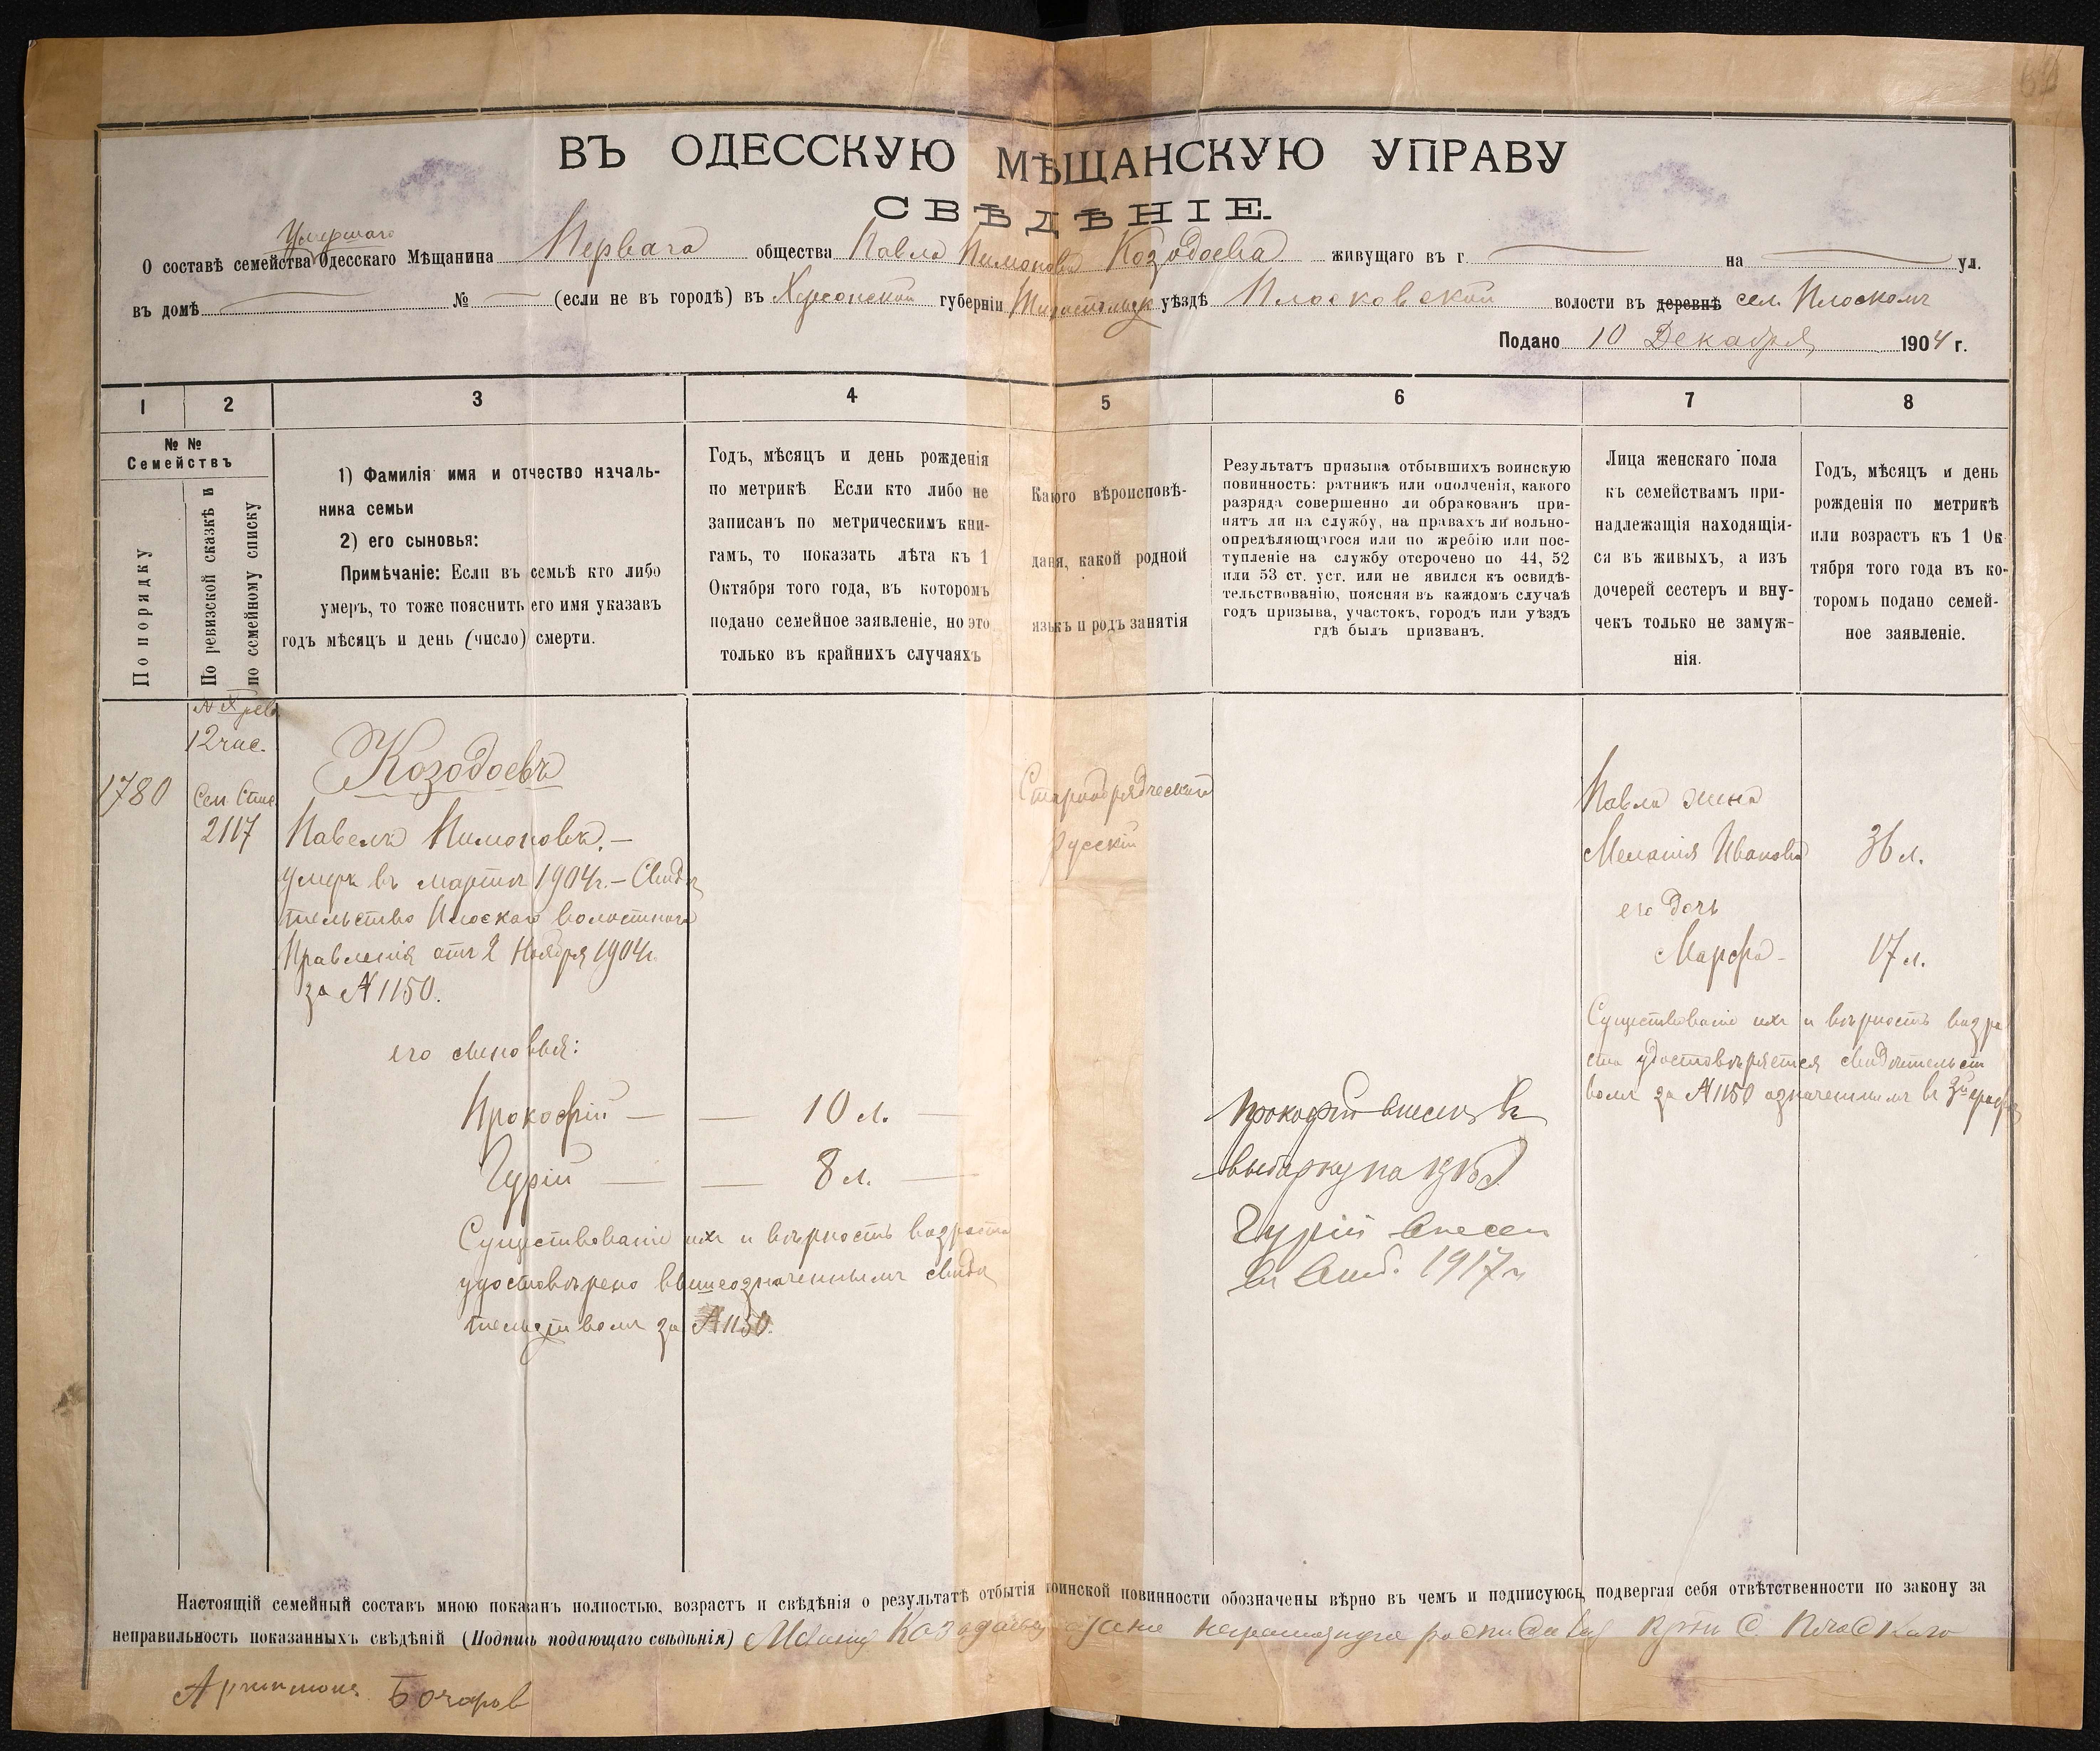 ВЪ ОДЕССКУЮ МѢЩАНСКУЮ УПРАВУ
СВѢДѢНІЕ.
Умершаго
О составѣ семейства Одесскаго Мѣщанина Перваго общества Павла Пимонова Козодоева живущаго въ г. на ул.
въ домѣ № (если не въ городѣ) въ Херсонской губерніи Тираспольск уѣздѣ Плосковской волости въ деревнѣ сел. Плоскомъ
Подано 10 Декабря 1904 г.
1 2 3 4 5 6 7 8
№ №
Семействъ
По порядку
По ревизской сказкѣ и
по семейному списку
1) Фамилія имя и отчество началь-
ника семьи
2) его сыновья:
Примѣчаніе: Если въ семьѣ кто либо
умеръ, то тоже пояснить его имя указавъ
годъ мѣсяцъ и день (число) смерти.
Годъ, мѣсяцъ и день рожденія
по метрикѣ Если кто либо не
записанъ по метрическимъ кни-
гамъ, то показать лѣта къ 1
Октября того года, въ которомъ
подано семейное заявленіе, но это
только въ крайнихъ случаяхъ
Какого вѣроисповѣ-
данія, какой родной
языкъ и родъ занятія
Результатъ призыва отбывшихъ воинскую
повинность: ратникъ или ополченія, какого
разряда совершенно ли обракованъ при-
нятъ ли на службу, на правахъ ли вольно-
опредѣляющагося или по жребію или пос-
тупленіе на службу отсрочено по 44, 52
или 53 ст. уст. или не явился къ освидѣ-
тельствованію, поясняя въ каждомъ случаѣ
годъ призыва, участокъ, городъ или уѣздъ
гдѣ былъ призванъ.
Лица женскаго пола
къ семействамъ при-
надлежащія находящія-
ся въ живыхъ, а изъ
дочерей сестеръ и вну-
чекъ только не замуж-
нія.
Годъ, мѣсяцъ и день
рожденія по метрикѣ
или возрастъ къ 1 Ок
тября того года въ ко-
торомъ подано семей-
ное заявленіе.
№ X рев.
12 час.
1780
Сем Спис
2117
Козодоевъ
Павелъ Пимоновъ. —
умеръ въ мартѣ 1904 г. — Свидѣ
тельство Плоскаго волостнаго
Правленія отъ 2 Ноября 1904 г.
за № 1150.
его сыновья:
Прокофій — — 10 л. —
Гурій — — 8 л. —
Существованіе ихъ и вѣрность возраста
удостовѣрено вышеозначеннымъ свидѣ
тельствомъ за № 1150.
Старообрядческій
Русскій
Прокофій внесенъ въ
выборку на
Гурій внесен
в 1917 г
Павла жена
Меланія Иванова 36 л.
его дочь
Марфа — 17 л.
Существованіе ихъ и вѣрность возра
ста удостовѣряется свидѣтельст
вомъ за № 1150 означеннымъ въ 3й графѣ
Настоящій семейный составъ мною показанъ полностью, возрастъ и свѣдѣнія о результатѣ отбытія воинской повинности обозначены вѣрно въ чемъ и подписуюсь, подвергая себя отвѣтственности по закону за
неправильность показанныхъ свѣдѣній (Подпись подающаго свѣдѣнія) с. Плоскаго
Бочаров